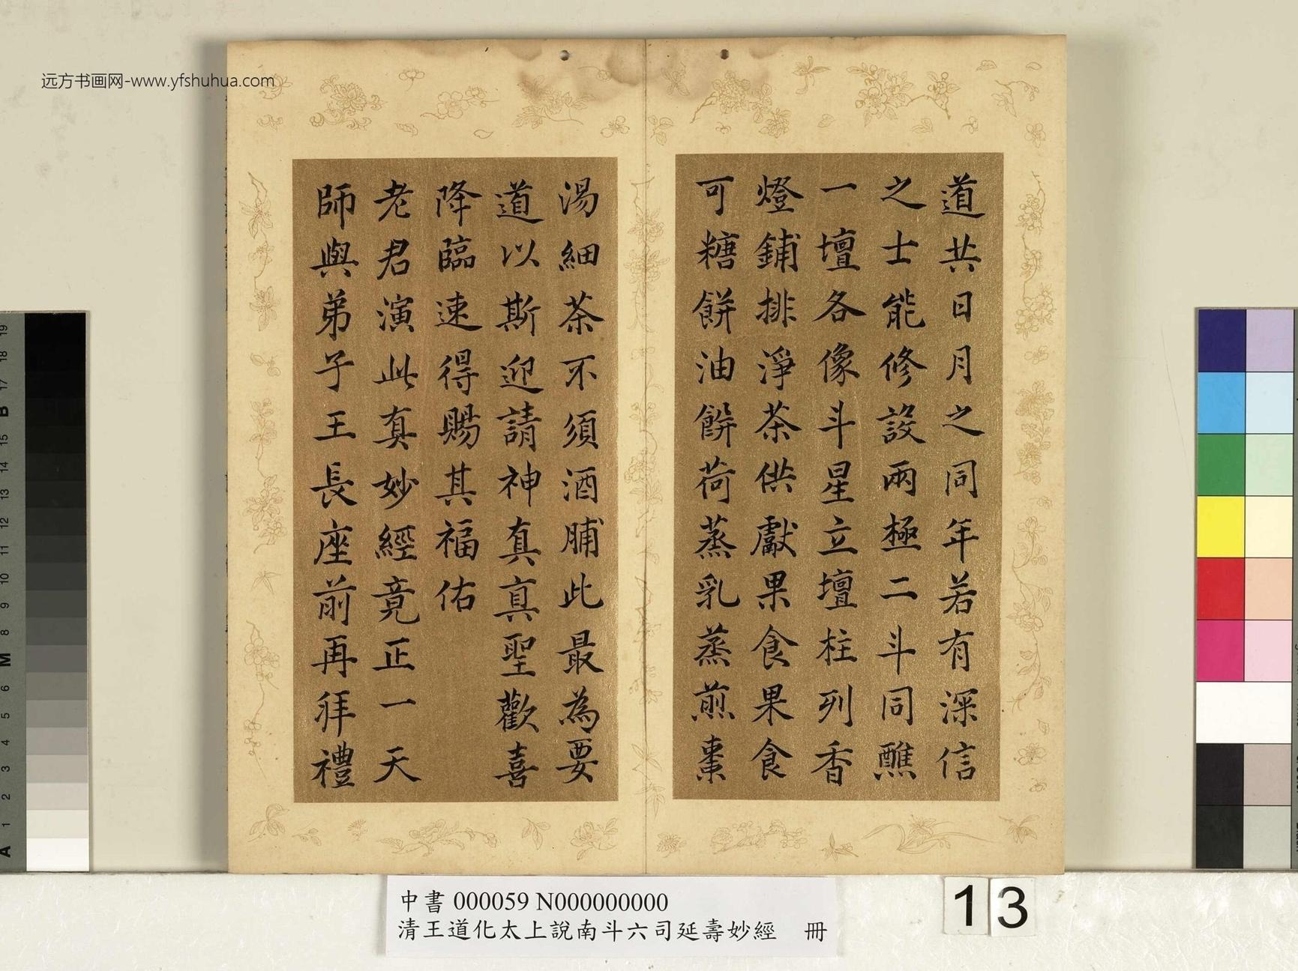 远方书画网-www.yfshuhua.com
道共日月之同年若有深信
之士能修設兩極二斗同醮
一壇各像斗星立壇炷列香
燈鋪排淨茶供獻果食果食
可糖餅油餅荷蒸乳蒸煎棗
湯細茶不須酒脯此最為要
道以斯迎請神真真聖歡喜
降臨速得賜其福佑
老君演此真妙經竟正一天
師與弟子王長座前再拜禮
中書 000059 N000000000
清王道化太上說南斗六司延壽妙經 冊
13